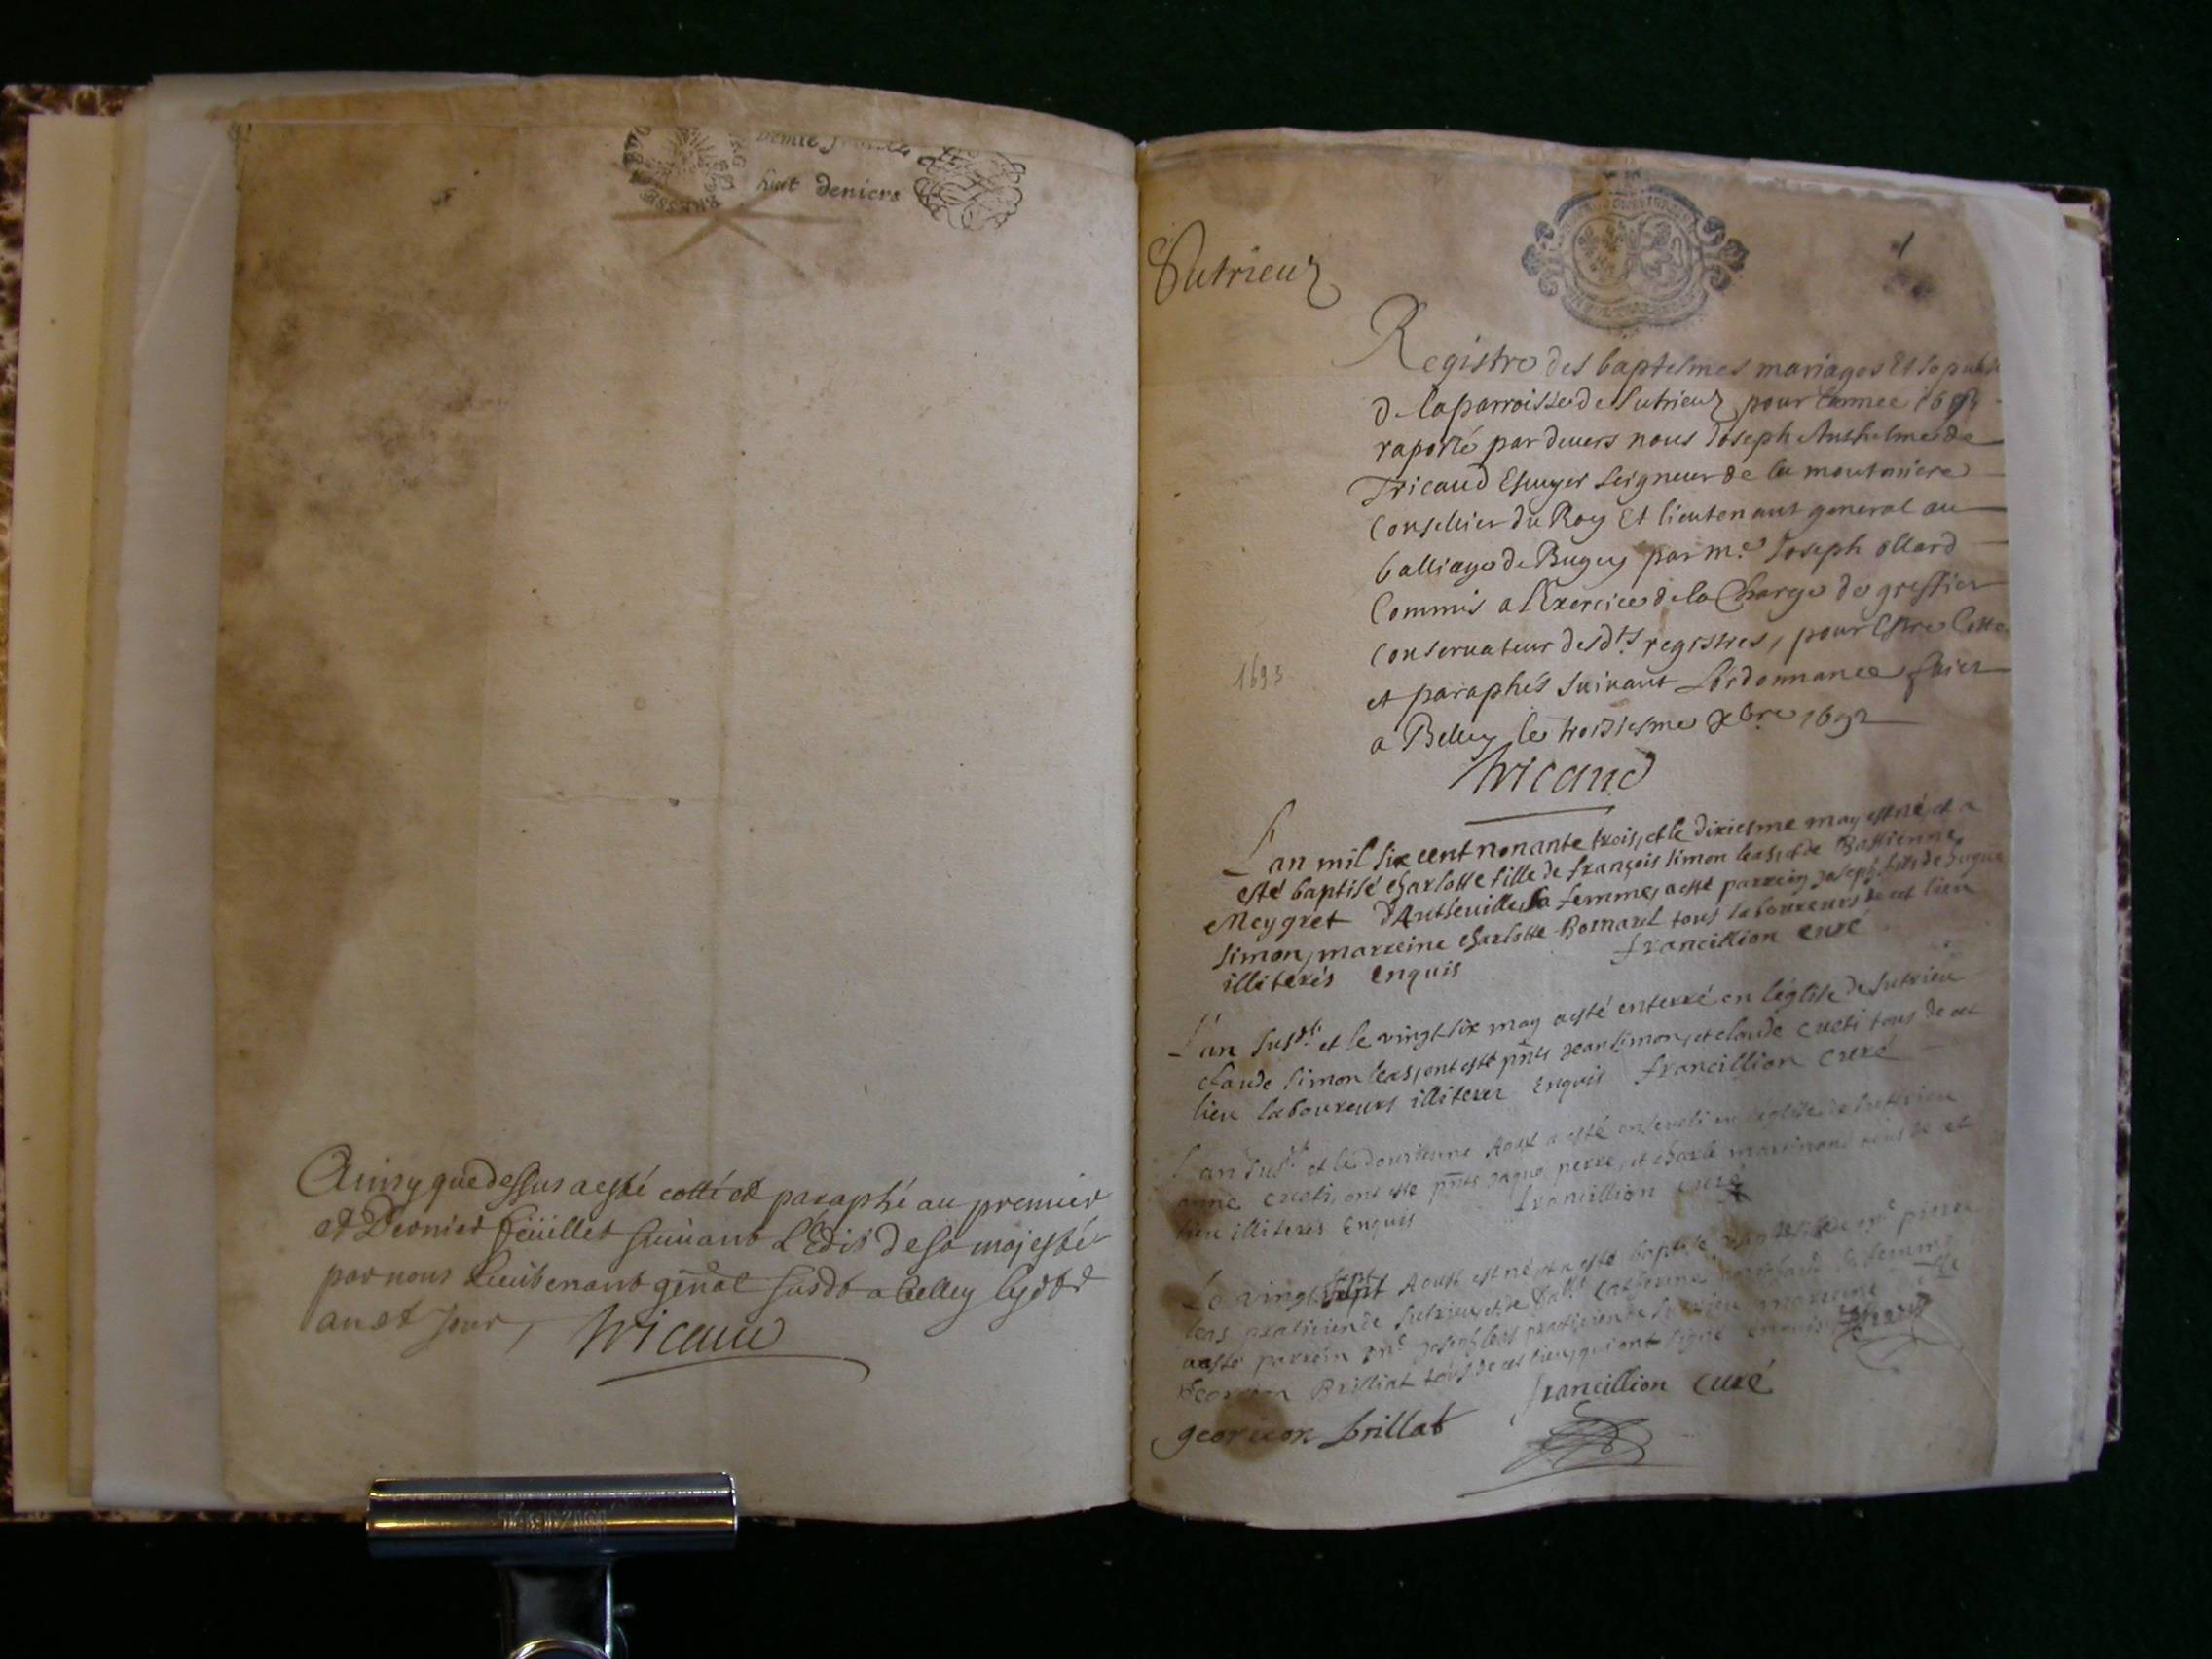 huit deniers
Ainsy que dessus a esté cotté et paraphé au premier
et Dernier feüillet suiuant L'Edit de sa majesté
par nous Lieutenant genal susdt a Belley les dt
an et Jour, Tricaud
Sutrieu
1
Registre des baptesmes mariages Et sepult
de la parroisse de Sutrieu pour l'annee 1693
raporté par deuers nous Joseph Anthelme de
Tricaud Escuyer Seigneur de la
Conseillier du Roy Et lieutenant general au
balliage de Bugey par m.e Joseph ollard
Commis a l'Exercice de la Charge de greffier
conseruateur desd.ts registres, pour Estre Cotte
et paraphés suiuant L'ordonnance faict
a Belley le troisiesme xbre 1692
1693
Tricaud
L'an mil six cent nonante trois, et le dixiesme may est né, et a
esté baptisé charlotte fille de françois simon leas, et de Bastienne
Meygret d'Antheuille sa femme, a esté parrein joseph fils de
simon, marreine charlotte Bornarel tous laboureurs de cet lieu
illiterés enquis francillion curé
L'an susd.t et le vingt six may a esté enterré en l'église de sutrieu
claude simon leas, ont esté pnts jean simon, et claude cueti tous de cet
lieu laboureurs illiterer Enquis francillion curé
L'an susd.t et le Aoust a esté enseueli en l'église de sutrieu
anne cueti, ont esté pnts perre, et charle martinand tous de cet
lieu illiterés Enquis francillion curé
Le vingt sept Aoust est né, et a esté baptisé de me pierre
leas praticien de sutrieu, et de catherine sa femme
a esté parrein me joseph leas praticien de sutrieu marreine
Brilliat tous de cet lieu, qui ont signé enquis
francillion curé
brillat